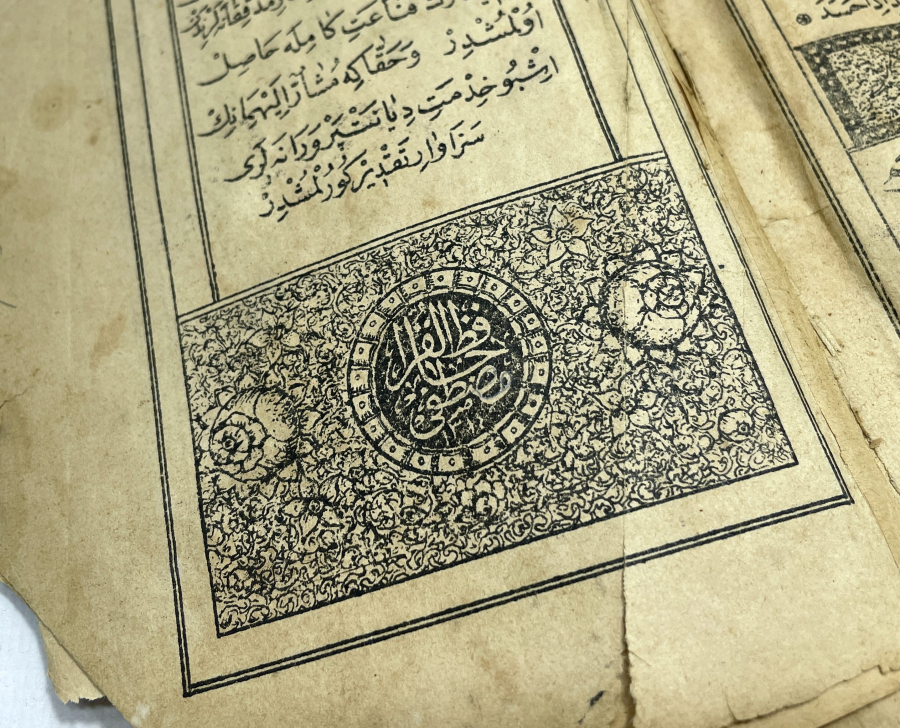 قناعتِ كامله حاصل
اولمشدر وحقاكه مشار اليهمانك
اشبو خدمتِ ديانتپرورانه لرى
سزاوار تقدير كورلمشدر
حافظ القرآن
مصطفى
احمد